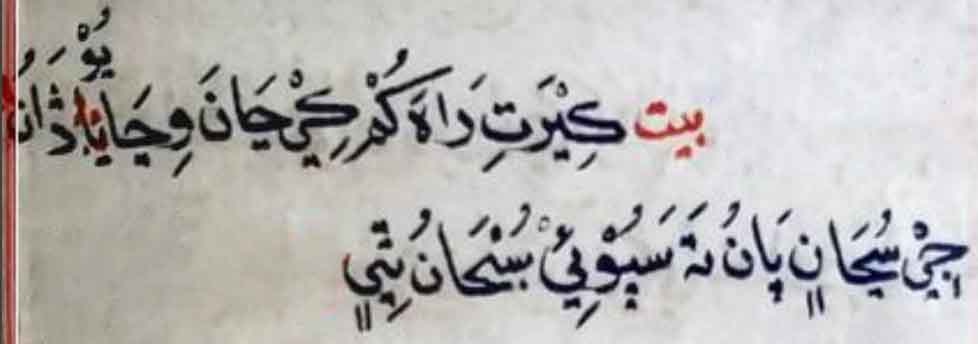 بيت كِيْرَتِ رَاهَ كُمْ كِيْ جَانَ وِجَايَا
جِيْ سُڃَانِ پَانُ تَہ سَڀُوْئِيْ سُنْڃَانُ ٿِيِ